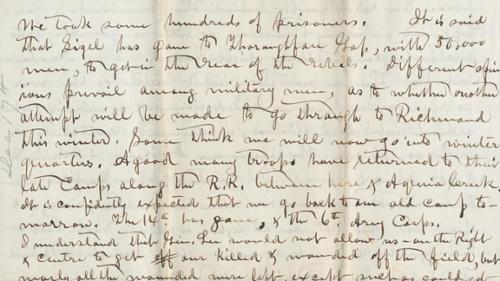 We took some hundreds of prisoners. It is said
that Sigel has gone to Thoroughfare Gap, with 50,000
men, to get in the rear of the rebels. Different opin
ions prevail among military men, as to whether another
attempt will be made to go through to Richmond
this winter. Some think we will now go into winter
quarters. A good many troops have returned to their
late Camps along the R.R. between here & Aquia Creek
It is confidently expected that we go back to an old camp to-
morrow. The 14th has gone, & the 6th Army Corps.
I understand that Gen. Lee would not allow us - on the Right
& centre to get off our killed & wounded off the field, but
nearly all the wounded were left, except such as could get